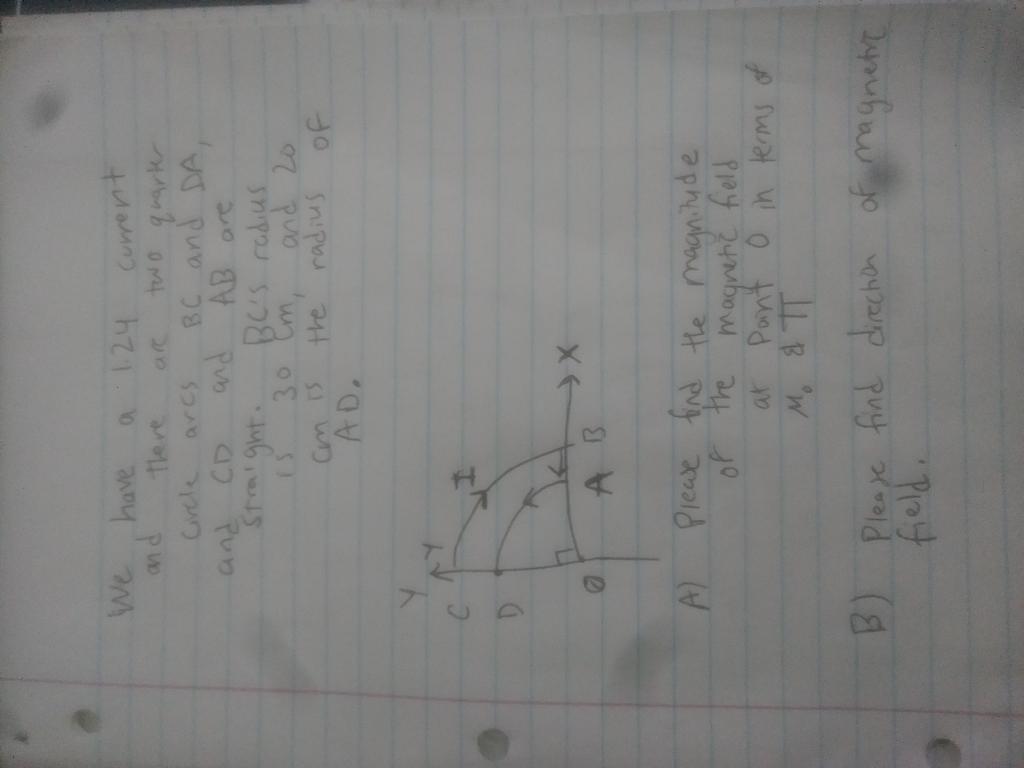 We have a 124 current
and there are two quarter
circle arcs BC and DA,
and CD and AB are
straight. BC's radius
is 30 cm, and 20
cm is the radius of
AD.
Y
C Y I
D
X
O A B
A) Please find the magnitude
of the magnetic field
at Point O in terms of
M₀ & π
B) Please find direction of magnetic
field.